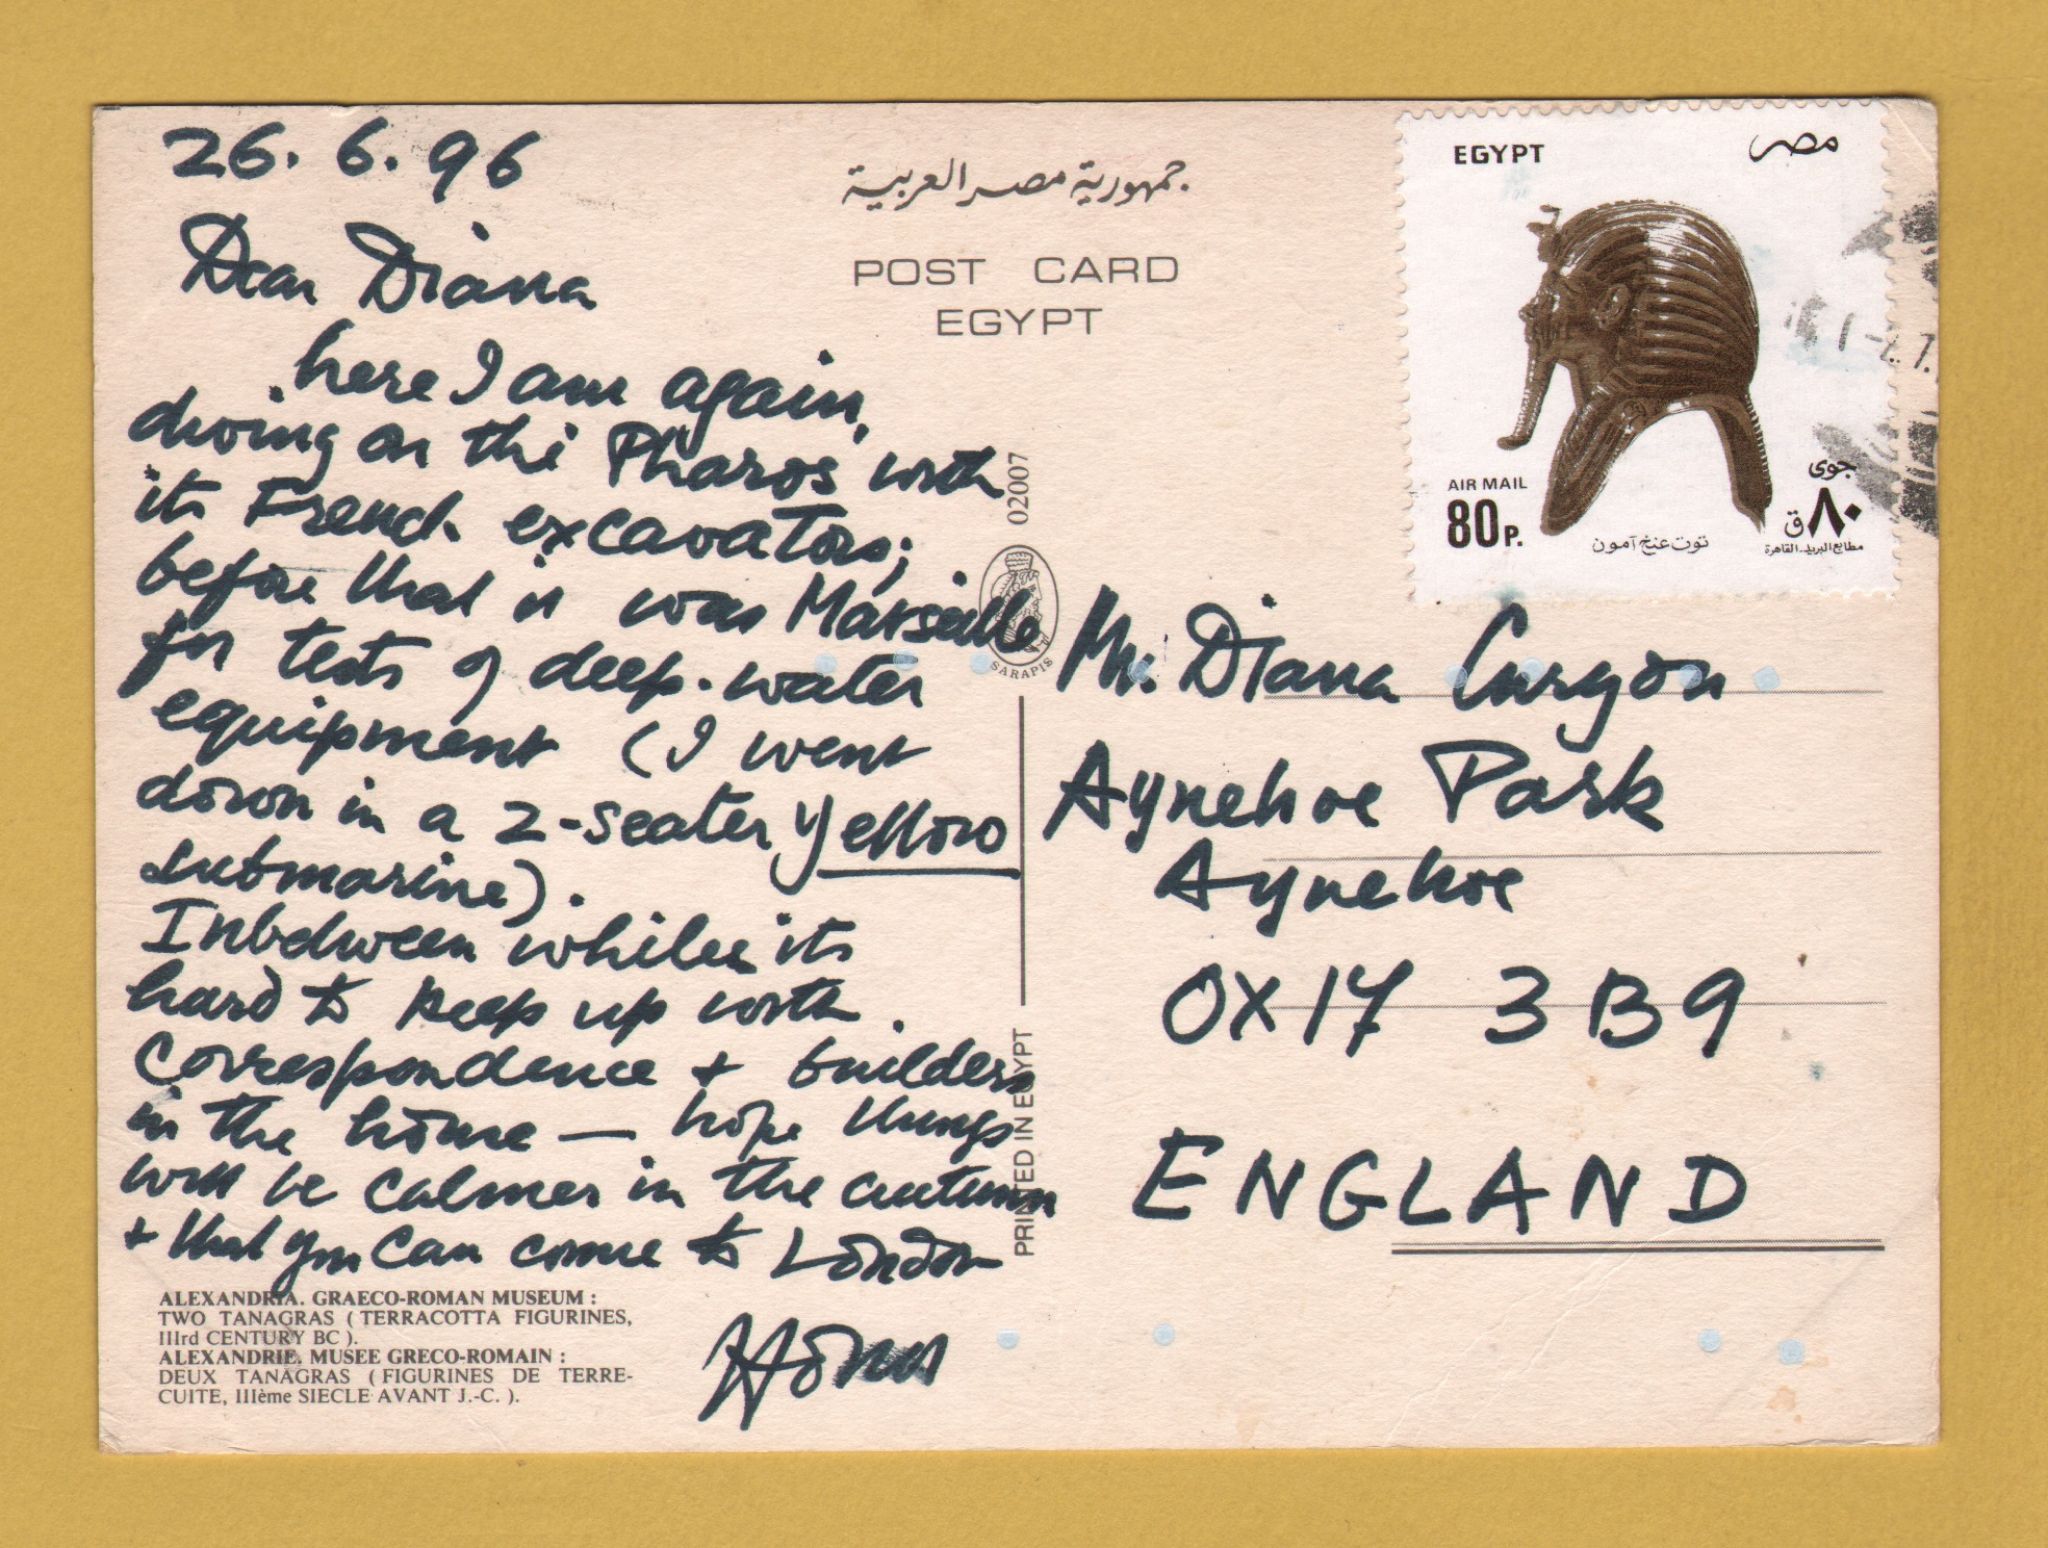 26. 6. 96
Dear Diana
here I am again,
diving on the Pharos with
its French excavators;
before that it was Marseille
for tests of deep-water
equipment (I went
down in a 2-seater yellow
submarine).
Inbetween whiles its
hard to keep up with
correspondence + builders
in the home — hope things
will be calmer in the autumn
+ that you can come to London
Honor
ALEXANDRIA. GRAECO-ROMAN MUSEUM :
TWO TANAGRAS ( TERRACOTTA FIGURINES,
IIIrd CENTURY BC ).
ALEXANDRIE. MUSEE GRECO-ROMAIN :
DEUX TANAGRAS ( FIGURINES DE TERRE-
CUITE, IIIème SIECLE AVANT J.-C. ).
جمهورية مصر العربية
POST CARD
EGYPT
02007
SARAPIS
PRINTED IN EGYPT
EGYPT مصر
AIR MAIL جوى
80 P. ٨٠ ق
توت عنخ آمون
مطابع البريد - القاهرة
Diana Curzon
Aynehoe Park
Aynehoe
OX17 3B9
ENGLAND